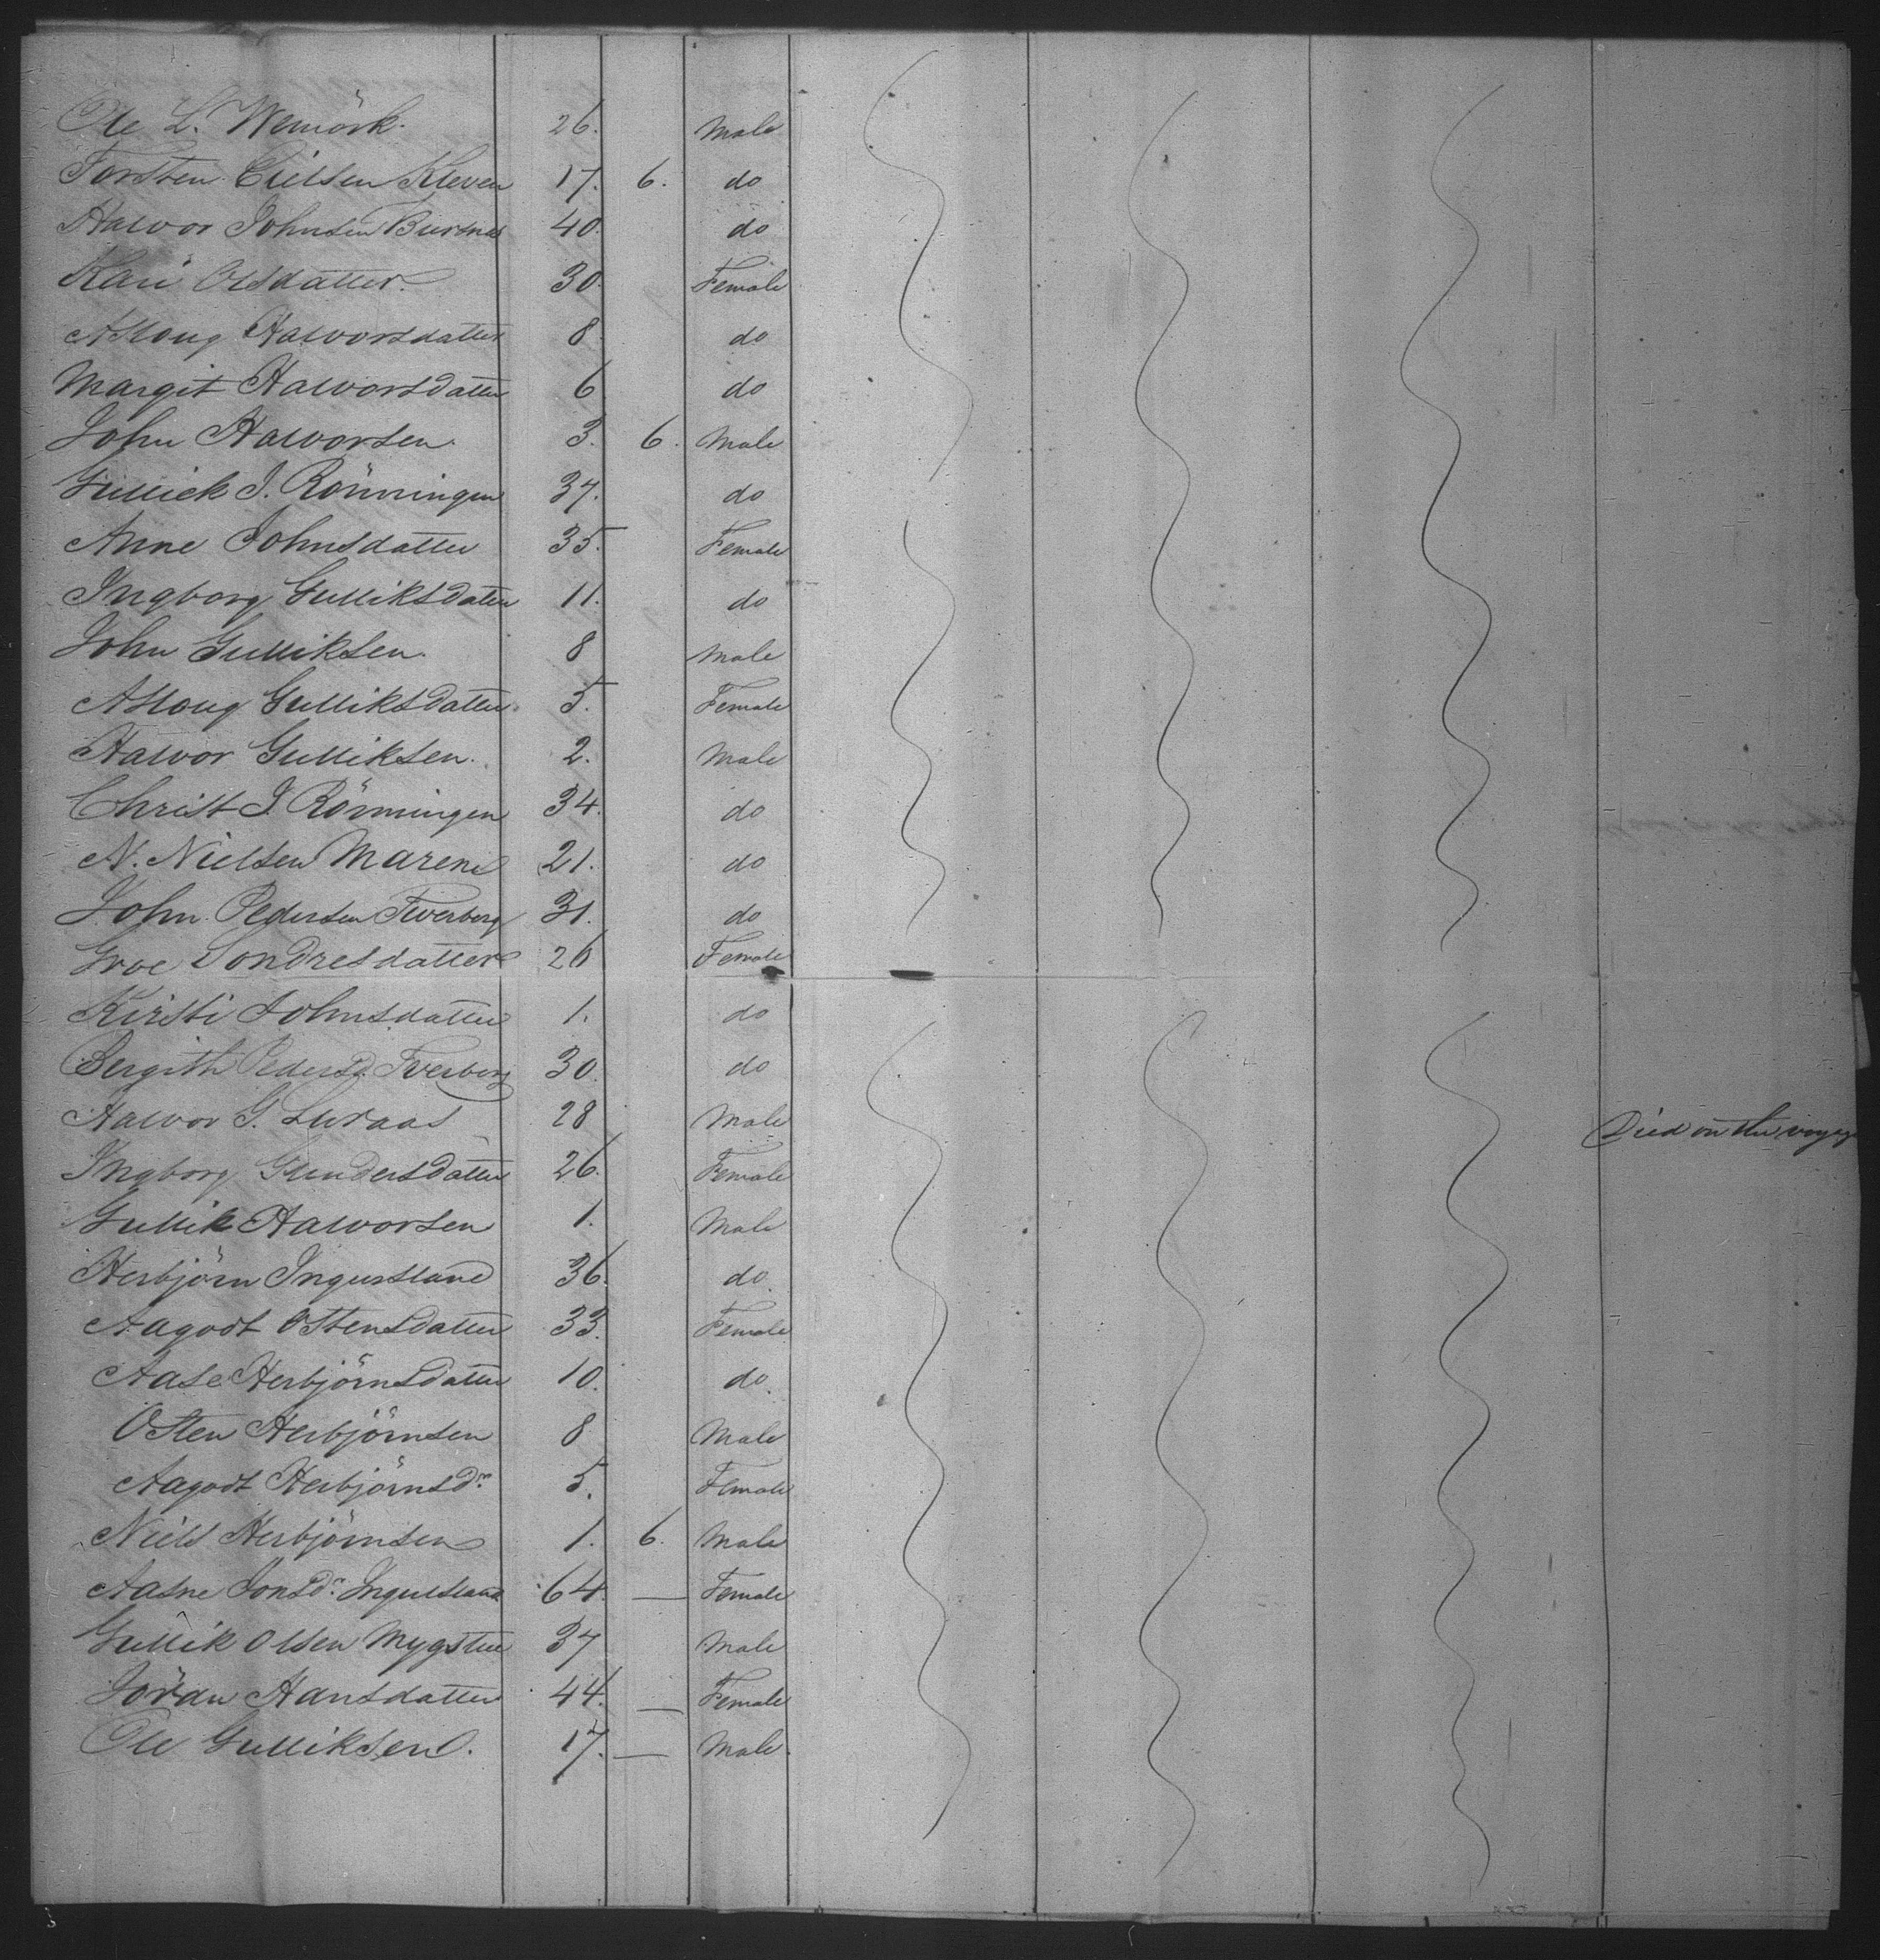 Ole L. Wemörk. 26. Male
Torsten Eielsen Kleven 17. 6. do
Halvor Johnsen Bursnes 40. do
Kari Olsdatter. 30. Female
Asloug Halvorsdatter 8 do
Margit Halvorsdatter 6 do
John Halvorsen. 3. 6. Male
Gullick J. Rönningen 37. do
Anne Johnsdatter 35. Female
Ingborg Gulliksdatter 11. do
John Gulliksen. 8 Male
Asloug Gulliksdatter 5. Female
Halvor Gulliksen. 2. Male
Christ J. Rönningen 34. do
N. Nielsen Marene 21. do
John Pedersen Tverberg 31. do
Groe Sondresdatter 26 Female
Kirsti Johnsdatter 1. do
Bergith Pedersd. Tverberg 30. do
Halvor G. Luraas 28 Male Died on the voyage
Ingborg Gundersdatter 26. Female
Gullik Halvorsen 1. Male
Herbjörn Ingustland 36. do
Aagodt Ostensdatter 33. Female
Aase Herbjörnsdatter 10. do.
Osten Herbjörnsen 8 Male
Aagodt Herbjörnsdr. 5. Female
Niels Herbjörnsen 1. 6. Male
Aasne Jonsdr. Ingulsland 64. — Female
Gullik Olsen Mygstue 37 Male
Jöran Hansdatter 44. — Female
Ole Gulliksen. 17. — Male.